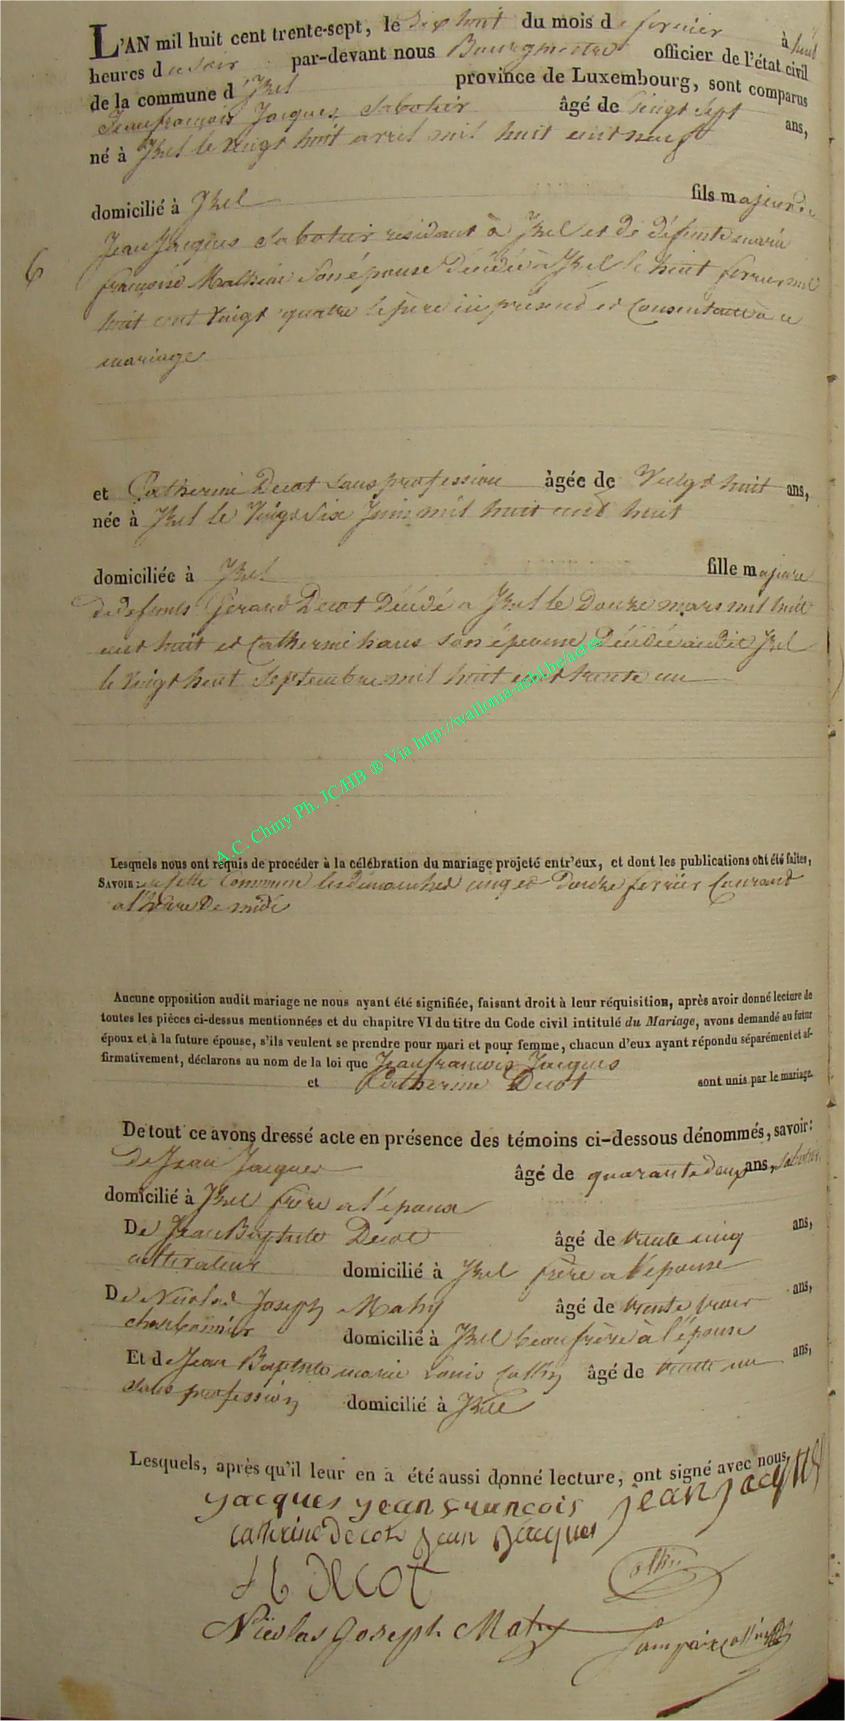 L'AN mil huit cent trente-sept, le dix huit du mois de fevrier à huit
heures du soir par-devant nous Bourgmestre officier de l'état civil
de la commune d'Izel province de Luxembourg, sont comparus
Jean françois Jacques Sabotier âgé de vingt sept ans,
né à Izel le vingt huit avril mil huit cent neuf
domicilié à Izel fils majeur de
Jean Jacques Sabotier residant à Izel et de défunte marie
françoise Mathieu son épouse décédée à Izel le huit fevrier mil
huit cent vingt quatre le père ici présent et Consentant à ce
mariage
6
et Catherine Decot sans profession âgée de Vingt huit ans,
née à Izel le Vingt six Juin mil huit cent huit
domiciliée à Izel fille majeure
de defunts Gerard Decot Décédé a Izel le Douze mars mil huit
cent huit et Catherine hans son épouse Décédée audit Izel
le vingt huit Septembre mil huit cent trente un
A.C. Chiny Ph. JC/HB ® Via http://wallonia-asbl.be/actes
Lesquels nous ont requis de procéder à la célébration du mariage projeté entr'eux, et dont les publications ont été faites,
SAVOIR: en cette Commune les dimanches cinq et Douze fevrier Courant
a l'heure De midi
Aucune opposition audit mariage ne nous ayant été signifiée, faisant droit à leur réquisition, après avoir donné lecture de
toutes les pièces ci-dessus mentionnées et du chapitre VI du titre du Code civil intitulé du Mariage, avons demandé au futur
époux et à la future épouse, s'ils veulent se prendre pour mari et pour femme, chacun d'eux ayant répondu séparément et af-
firmativement, déclarons au nom de la loi que Jean françois Jacques
et Catherine Decot sont unis par le mariage.
De tout ce avons dressé acte en présence des témoins ci-dessous dénommés, savoir:
De Jean Jacques âgé de quarante deux ans, Sabotier
domicilié à Izel frère a l'époux
De Jean Baptiste Decot âgé de trente cinq ans,
cultivateur domicilié à Izel frère a l'épouse
De Nicolas Joseph Mahy âgé de trente trois ans,
charbonnier domicilié à Izel beau frère à l'épouse
Et de Jean Baptiste marie Louis Collin âgé de trente un ans,
sans profession domicilié à Izel
Lesquels, après qu'il leur en a été aussi donné lecture, ont signé avec nous,
jacques jean francois jean jacques
catherine decot jean jacques
J b Decot Collin
Nicolas Joseph Mahy